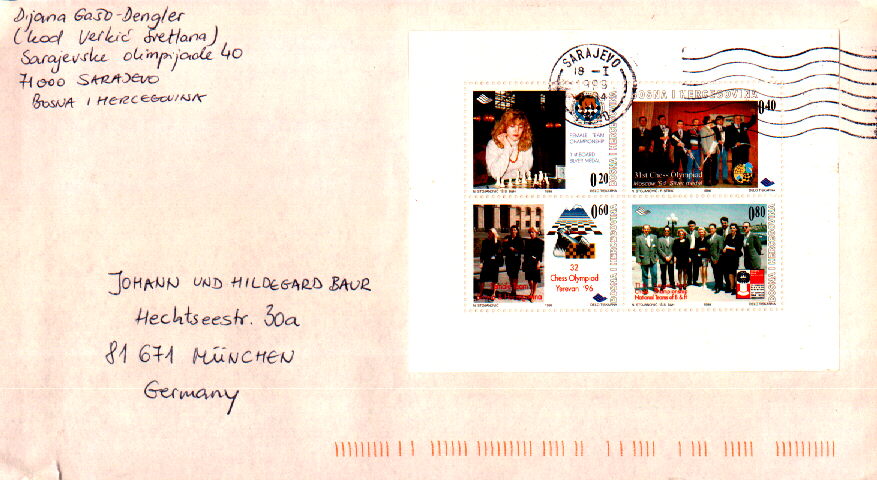 Dijana Gašo-Dengler
(kod Verkić Svetlana)
Sarajevske olimpijade 40
71000 SARAJEVO
BOSNA I HERCEGOVINA
SARAJEVO
18 -I
BOSNA I HERCEGOVINA
FEMALE TEAM
CHAMPIONSHIP
SILVER MEDAL
0.20
BOSNA I HERCEGOVINA
0.40
31st Chess Olympiad
Moscow '94 Silver medal
1996
0.60
32
Chess Olympiad
Yerevan '96
BOSNA I HERCEGOVINA
1996
0.80
National Teams of B & H
BOSNA I HERCEGOVINA
1996
JOHANN UND HILDEGARD BAUR
Hechtseestr. 30a
81 671 MÜNCHEN
Germany